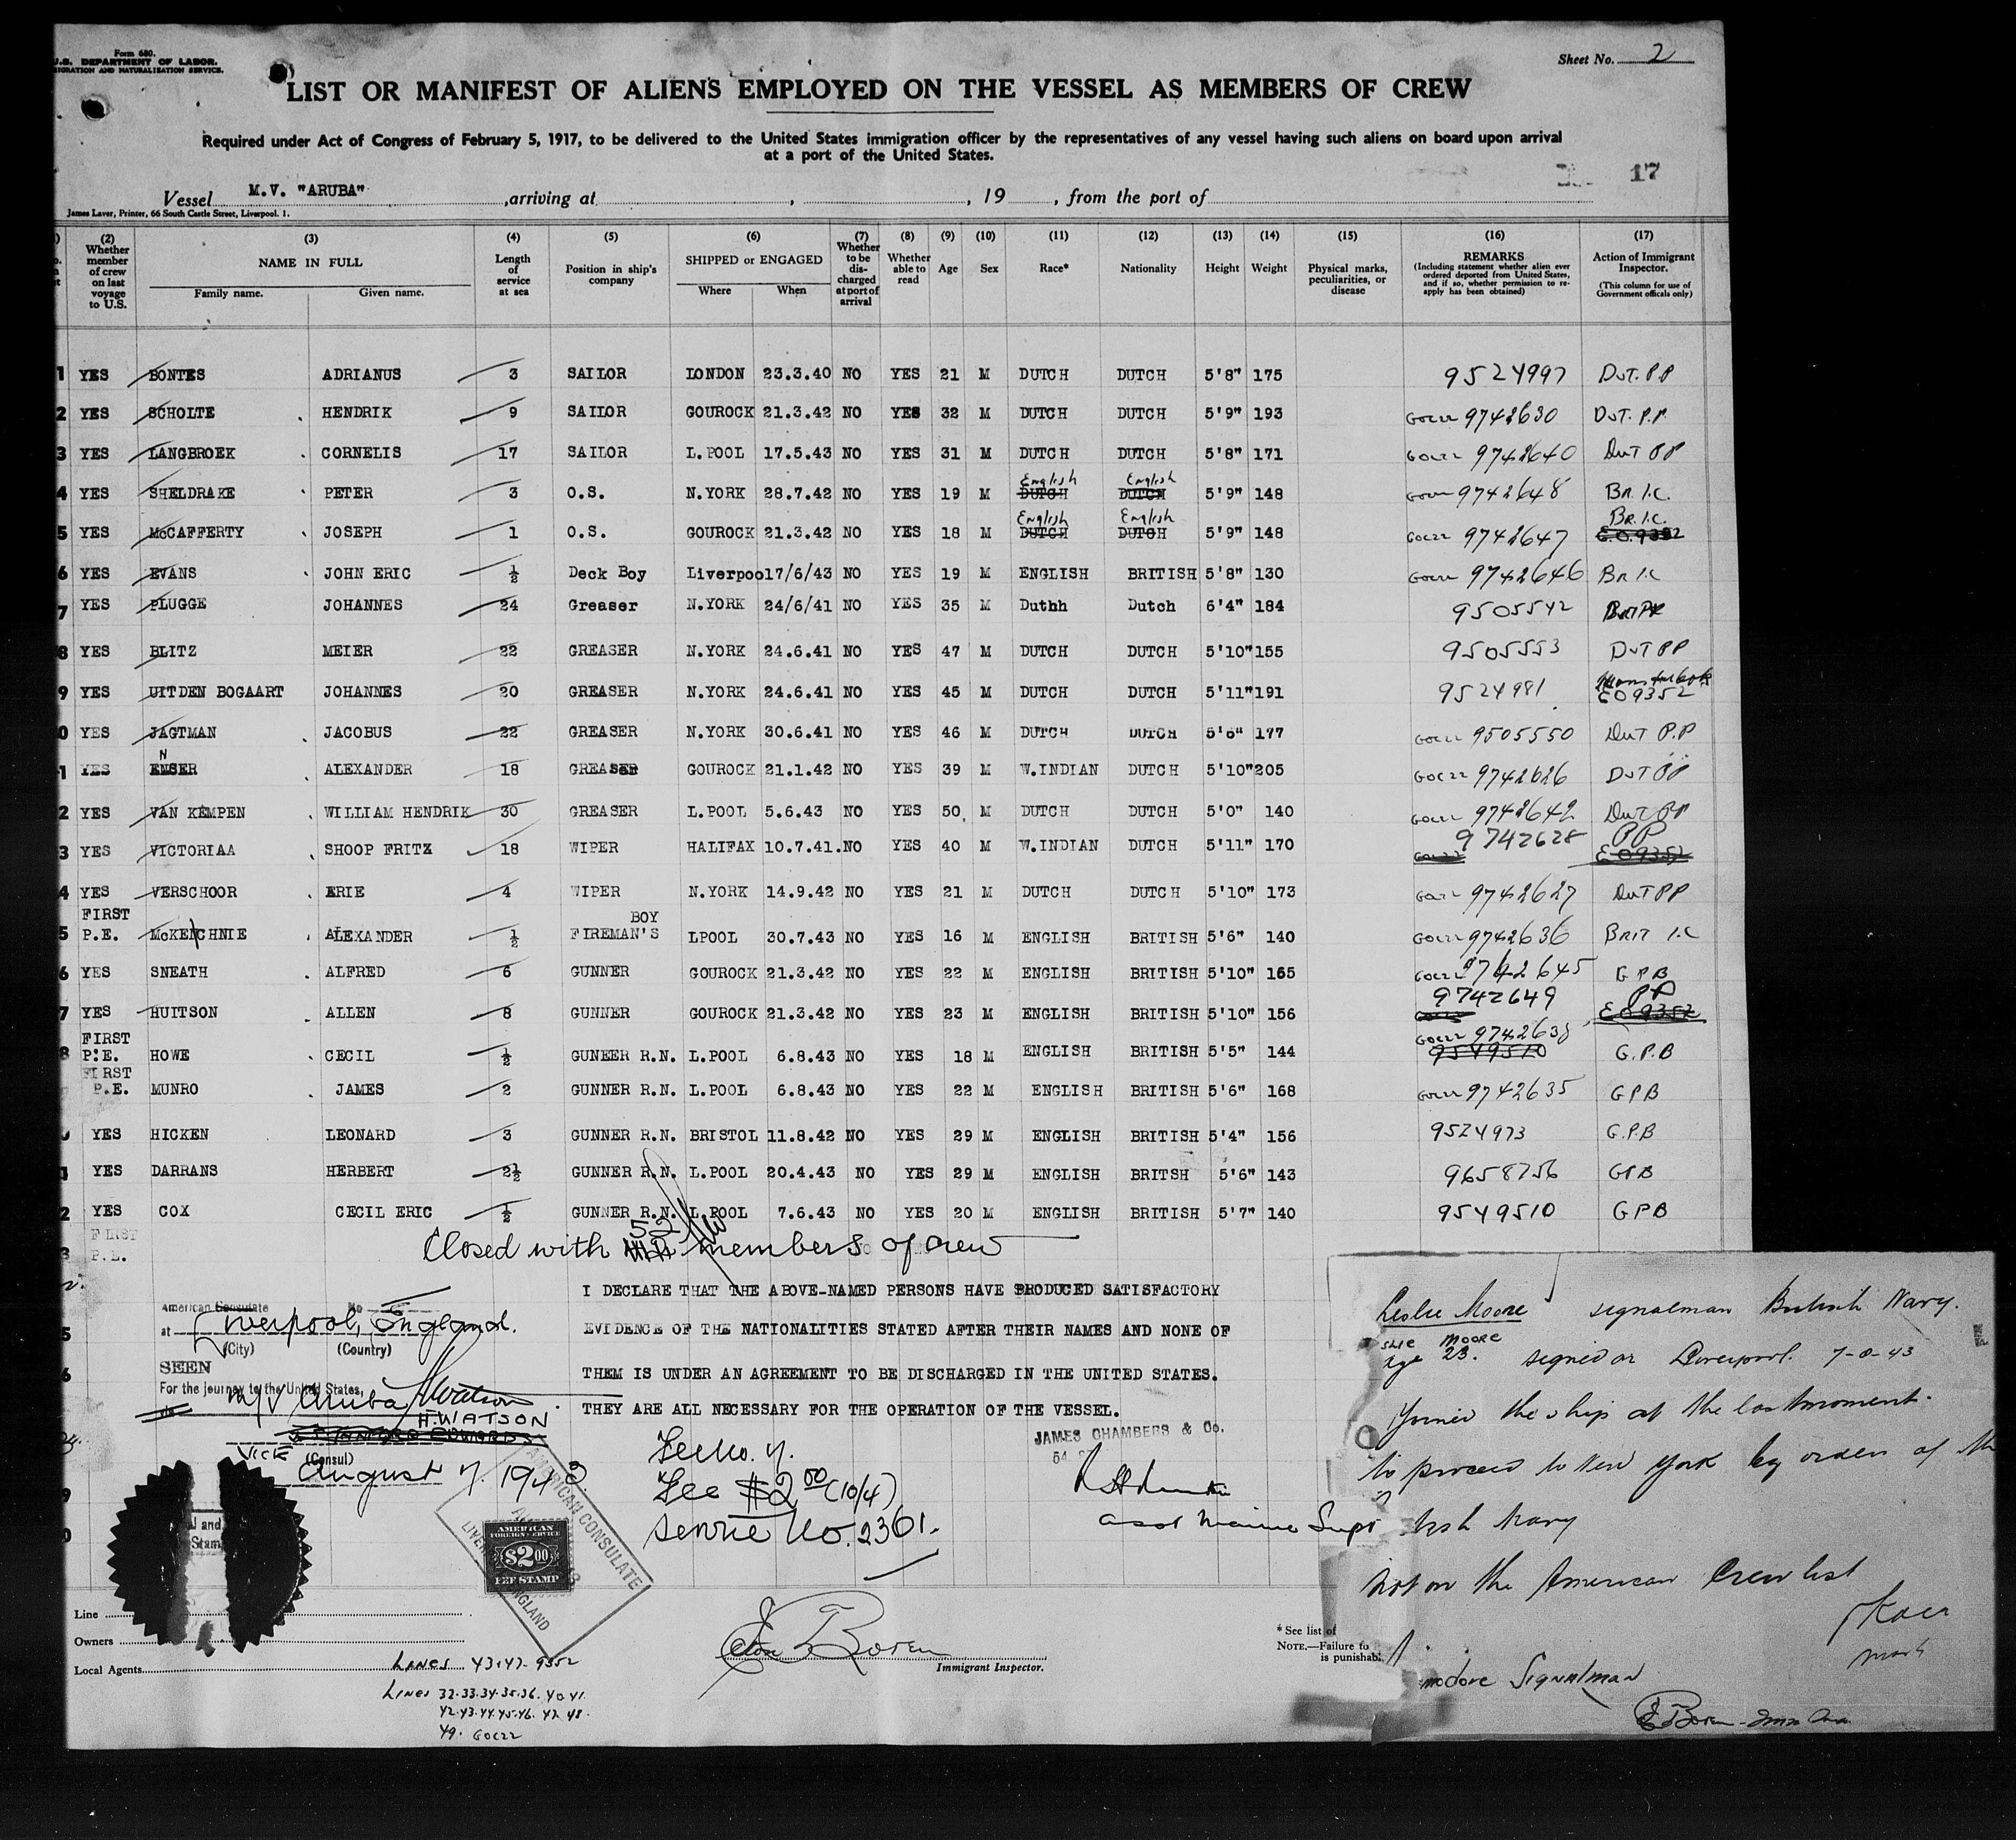 Form 680.
U.S. DEPARTMENT OF LABOR.
IMMIGRATION AND NATURALIZATION SERVICE.
Sheet No. 2
LIST OR MANIFEST OF ALIENS EMPLOYED ON THE VESSEL AS MEMBERS OF CREW
Required under Act of Congress of February 5, 1917, to be delivered to the United States immigration officer by the representatives of any vessel having such aliens on board upon arrival
at a port of the United States.
17
Vessel M.V. "ARUBA" ,arriving at , , 19 , from the port of
James Laver, Printer, 66 South Castle Street, Liverpool. 1.
(2) Whether member of crew on last voyage to U.S. (3) NAME IN FULL Family name. Given name. (4) Length of service at sea (5) Position in ship's company (6) SHIPPED or ENGAGED Where When (7) Whether to be discharged at port of arrival (8) Whether able to read (9) Age (10) Sex (11) Race* (12) Nationality (13) Height (14) Weight (15) Physical marks, peculiarities, or disease (16) REMARKS (Including statement whether alien ever ordered deported from United States, and if so, whether permission to re-apply has been obtained) (17) Action of Immigrant Inspector. (This column for use of Government officals only)
1 YES BONTES ADRIANUS 3 SAILOR LONDON 23.3.40 NO YES 21 M DUTCH DUTCH 5'8" 175 9524997 DUT. PP
2 YES SCHOLTE HENDRIK 9 SAILOR GOUROCK 21.3.42 NO YES 32 M DUTCH DUTCH 5'9" 193 GOC22 9742630 DUT. P.P.
3 YES LANGBROEK CORNELIS 17 SAILOR L.POOL 17.5.43 NO YES 31 M DUTCH DUTCH 5'8" 171 GOC22 9742640 DUT PP
4 YES SHELDRAKE PETER 3 O.S. N.YORK 28.7.42 NO YES 19 M English DUTCH English DUTCH 5'9" 148 9742648 BR. I.C.
5 YES McCAFFERTY JOSEPH 1 O.S. GOUROCK 21.3.42 NO YES 18 M English DUTCH English DUTCH 5'9" 148 GOC22 9742647 BR. I.C. E.O. 9352
6 YES EVANS JOHN ERIC ½ Deck Boy Liverpool 17/6/43 NO YES 19 M ENGLISH BRITISH 5'8" 130 GOC22 9742646 BR I.C
7 YES PLUGGE JOHANNES 24 Greaser N.YORK 24/6/41 NO YES 35 M Duthh Dutch 6'4" 184 9505542
8 YES BLITZ MEIER 22 GREASER N.YORK 24.6.41 NO YES 47 M DUTCH DUTCH 5'10" 155 9505553 DUT PP
9 YES UITDEN BOGAART JOHANNES 20 GREASER N.YORK 24.6.41 NO YES 45 M DUTCH DUTCH 5'11" 191 9524981 EO 9352
0 YES JAGTMAN JACOBUS 22 GREASER N.YORK 30.6.41 NO YES 46 M DUTCH DUTCH 5'6" 177 GOC22 9505550 DUT P.P
1 YES ENSER N ALEXANDER 18 GREASER GOUROCK 21.1.42 NO YES 39 M W.INDIAN DUTCH 5'10" 205 GOC22 9742626 DUT PP
2 YES VAN KEMPEN WILLIAM HENDRIK 30 GREASER L.POOL 5.6.43 NO YES 50 M DUTCH DUTCH 5'0" 140 GOC22 9742642 DUT PP
3 YES VICTORIAA SHOOP FRITZ 18 WIPER HALIFAX 10.7.41. NO YES 40 M W.INDIAN DUTCH 5'11" 170 9742628 GOC22 PP EO 9352
4 YES VERSCHOOR ERIE 4 WIPER N.YORK 14.9.42 NO YES 21 M DUTCH DUTCH 5'10" 173 GOC22 9742627 DUT PP
5 FIRST P.E. McKENCHNIE ALEXANDER ½ FIREMAN'S BOY LPOOL 30.7.43 NO YES 16 M ENGLISH BRITISH 5'6" 140 GOC22 9742636 BRIT I.C
6 YES SNEATH ALFRED 6 GUNNER GOUROCK 21.3.42 NO YES 22 M ENGLISH BRITISH 5'10" 165 GOC22 9742645 G P B
7 YES HUITSON ALLEN 8 GUNNER GOUROCK 21.3.42 NO YES 23 M ENGLISH BRITISH 5'10" 156 9742649 GOC22 PP EO 9352
8 FIRST P.E. HOWE CECIL ½ GUNEER R.N. L.POOL 6.8.43 NO YES 18 M ENGLISH BRITISH 5'5" 144 GOC22 9742638 9549510 G.P.B
FIRST P.E. MUNRO JAMES 2 GUNNER R.N. L.POOL 6.8.43 NO YES 22 M ENGLISH BRITISH 5'6" 168 GOC22 9742635 GPB
YES HICKEN LEONARD 3 GUNNER R.N. BRISTOL 11.8.42 NO YES 29 M ENGLISH BRITISH 5'4" 156 9524973 G.P.B
1 YES DARRANS HERBERT 2½ GUNNER R.N. L.POOL 20.4.43 NO YES 29 M ENGLISH BRITSH 5'6" 143 9658756 GPB
2 YES COX CECIL ERIC ½ GUNNER R.N. L.POOL 7.6.43 NO YES 20 M ENGLISH BRITISH 5'7" 140 9549510 GPB
3 FIRST P.E.
Closed with 52 members of crew
I DECLARE THAT THE ABOVE-NAMED PERSONS HAVE PRODUCED SATISFACTORY
EVIDENCE OF THE NATIONALITIES STATED AFTER THEIR NAMES AND NONE OF
THEM IS UNDER AN AGREEMENT TO BE DISCHARGED IN THE UNITED STATES.
THEY ARE ALL NECESSARY FOR THE OPERATION OF THE VESSEL.
American Consulate No
at Liverpool, England.
(City) (Country)
SEEN
For the journey to the United States,
M/V Aruba HWatson
H. WATSON
VICE (Consul)
August 7. 1943
JAMES CHAMBERS & Co.
Asst Marine Supt
Fee $2.00 (10/4)
Service No. 2361.
AMERICAN CONSULATE
LIVERPOOL ENGLAND
AMERICAN
FOREIGN SERVICE
$2.00
FEE STAMP
Line
Owners
Local Agents
LINES 43.47- 9352
LINES 32.33.34.35.36. 40 41.
42.43.44.45.46. 47 48.
49. GOC22
Immigrant Inspector.
* See list of
NOTE.—Failure to
is punishab
Leslie Moore signalman British Navy.
MOORE
age 23. signed on Liverpool. 7-8-43
Joined the ship at the last moment.
to proceed to New York by order of the
Navy
Not on the American Crew list
Signalman